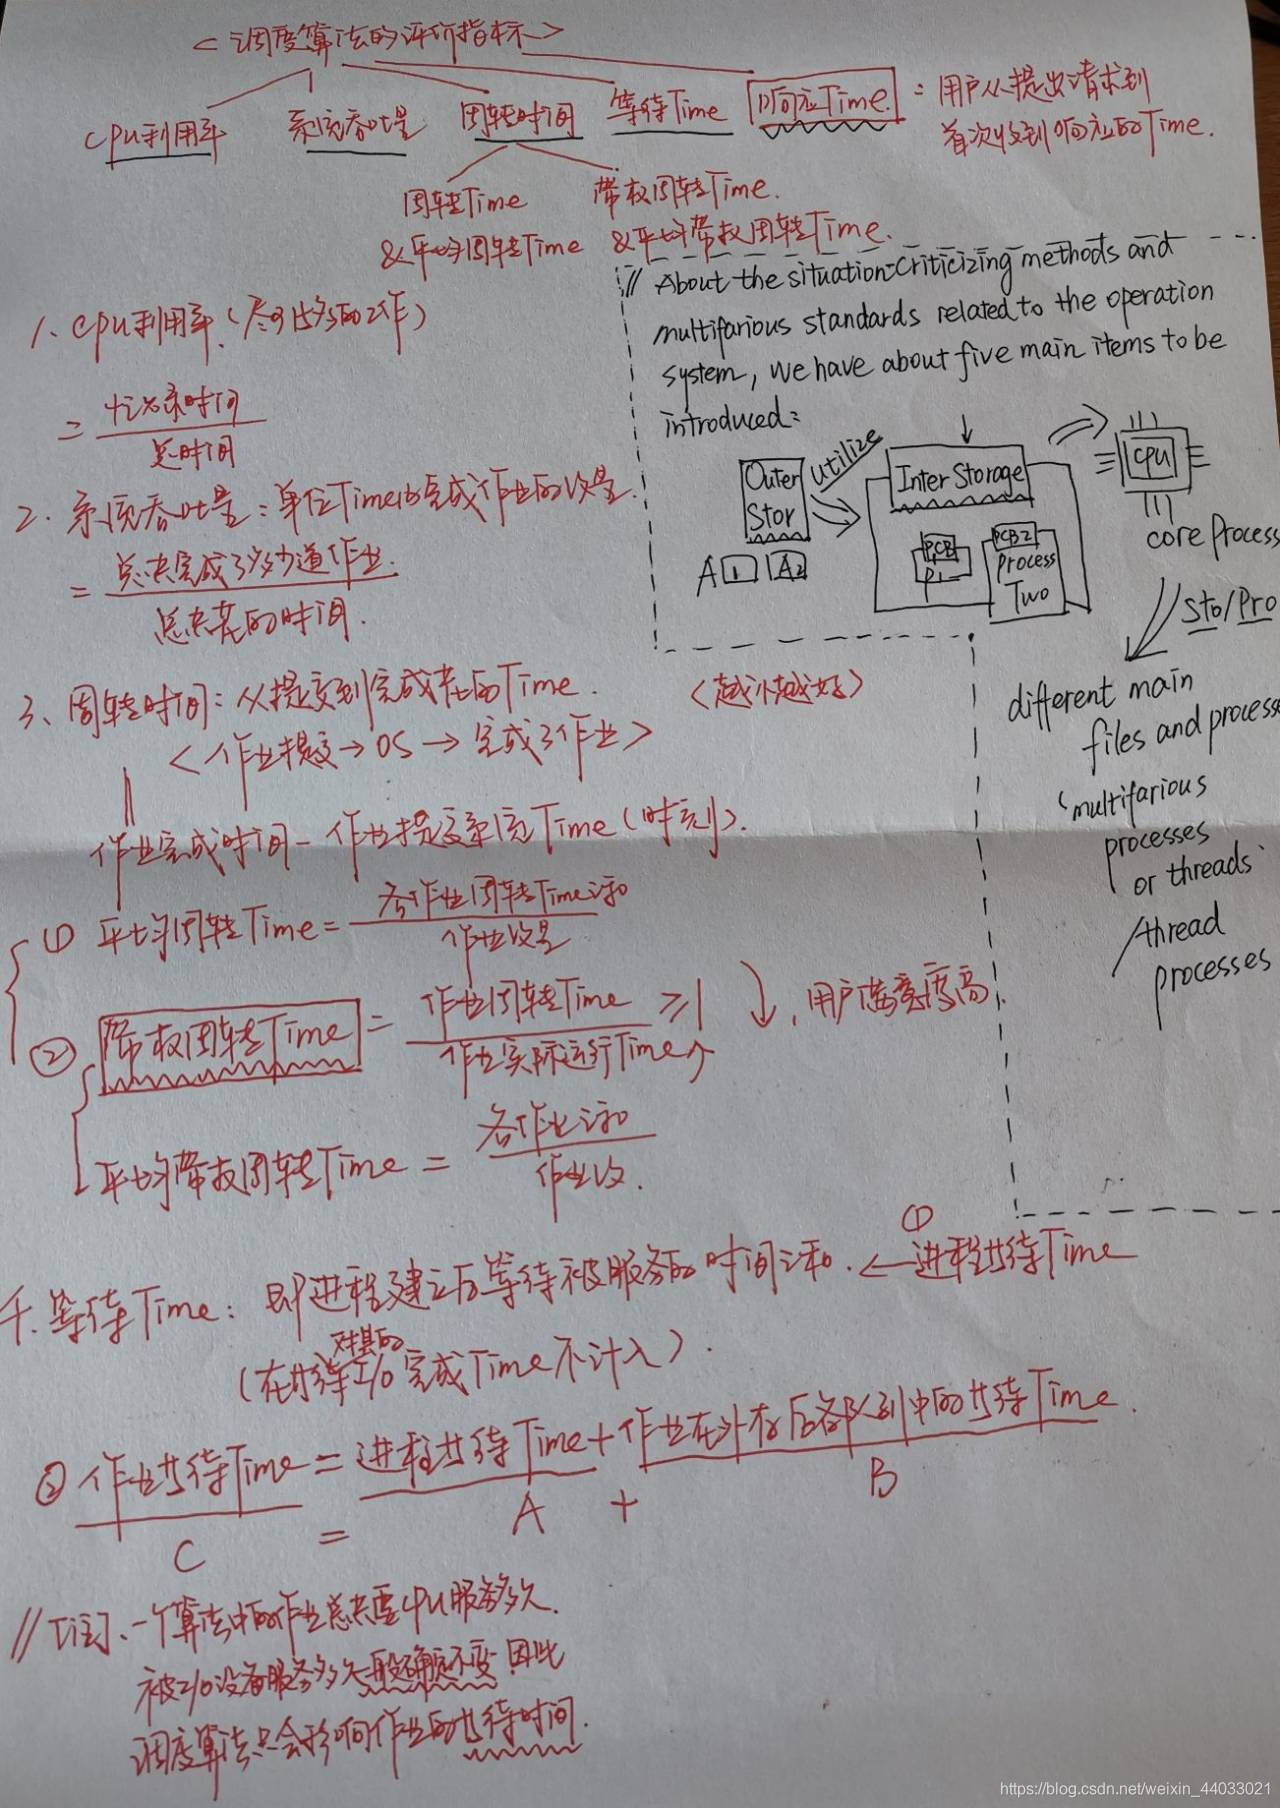 <调度算法的评价指标>
CPU利用率 系统吞吐量 周转时间 等待Time 响应Time : 用户从提出请求到
首次收到响应的Time.
周转Time 带权周转Time.
&平均周转Time &平均带权周转Time.
// About the situation-criticizing methods and
multifarious standards related to the operation
system, we have about five main items to be
introduced:
Outer
Stor
utilize
Inter Storage
CPU
A 1 A2
PCB
P1
PCB2
Process
Two
core process
Sto/Pro
different main
files and process
multifarious
processes
or threads
/thread
processes
1. CPU利用率 (尽可能多的工作)
= 忙碌时间
总时间
2. 系统吞吐量: 单位Time内完成作业的数量.
= 总共完成了多少道作业.
总共花的时间.
3、周转时间: 从提交到完成花的Time. <越小越好>
<作业提交→OS→完成了作业>
作业完成时间-作业提交系统Time(时刻).
① 平均周转Time= 各作业周转Time之和
作业数量
② 带权周转Time = 作业周转Time ≥1 ↓, 用户满意度高
作业实际运行Time↑
平均带权周转Time = 各作业之和
作业数.
4. 等待Time: 即进程建立后等待被服务的时间之和. ← ① 进程等待Time
对其的
(在等待I/O完成Time不计入).
② 作业等待Time = 进程等待Time + 作业在外存后备队列中的等待Time.
C = A + B
// 注、一个算法中的作业总共要CPU服务多久.
被I/O设备服务多久一般确定不变 因此
调度算法只会影响作业的等待时间.
https://blog.csdn.net/weixin_44033021